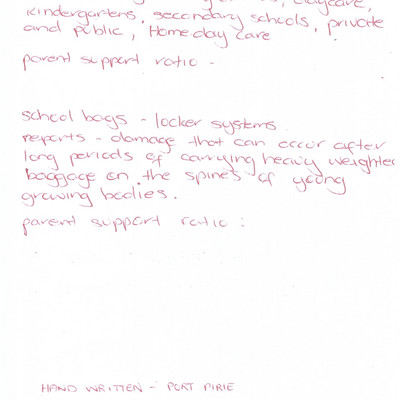 daycare,
kindergartens, secondary schools, private
and public, Home day care
parent support ratio -
school bags - locker systems
reports - damage that can occur after
long periods of carrying heavy weighted
baggage on the spines of young
growing bodies.
parent support ratio :
HAND WRITTEN - PORT PIRIE